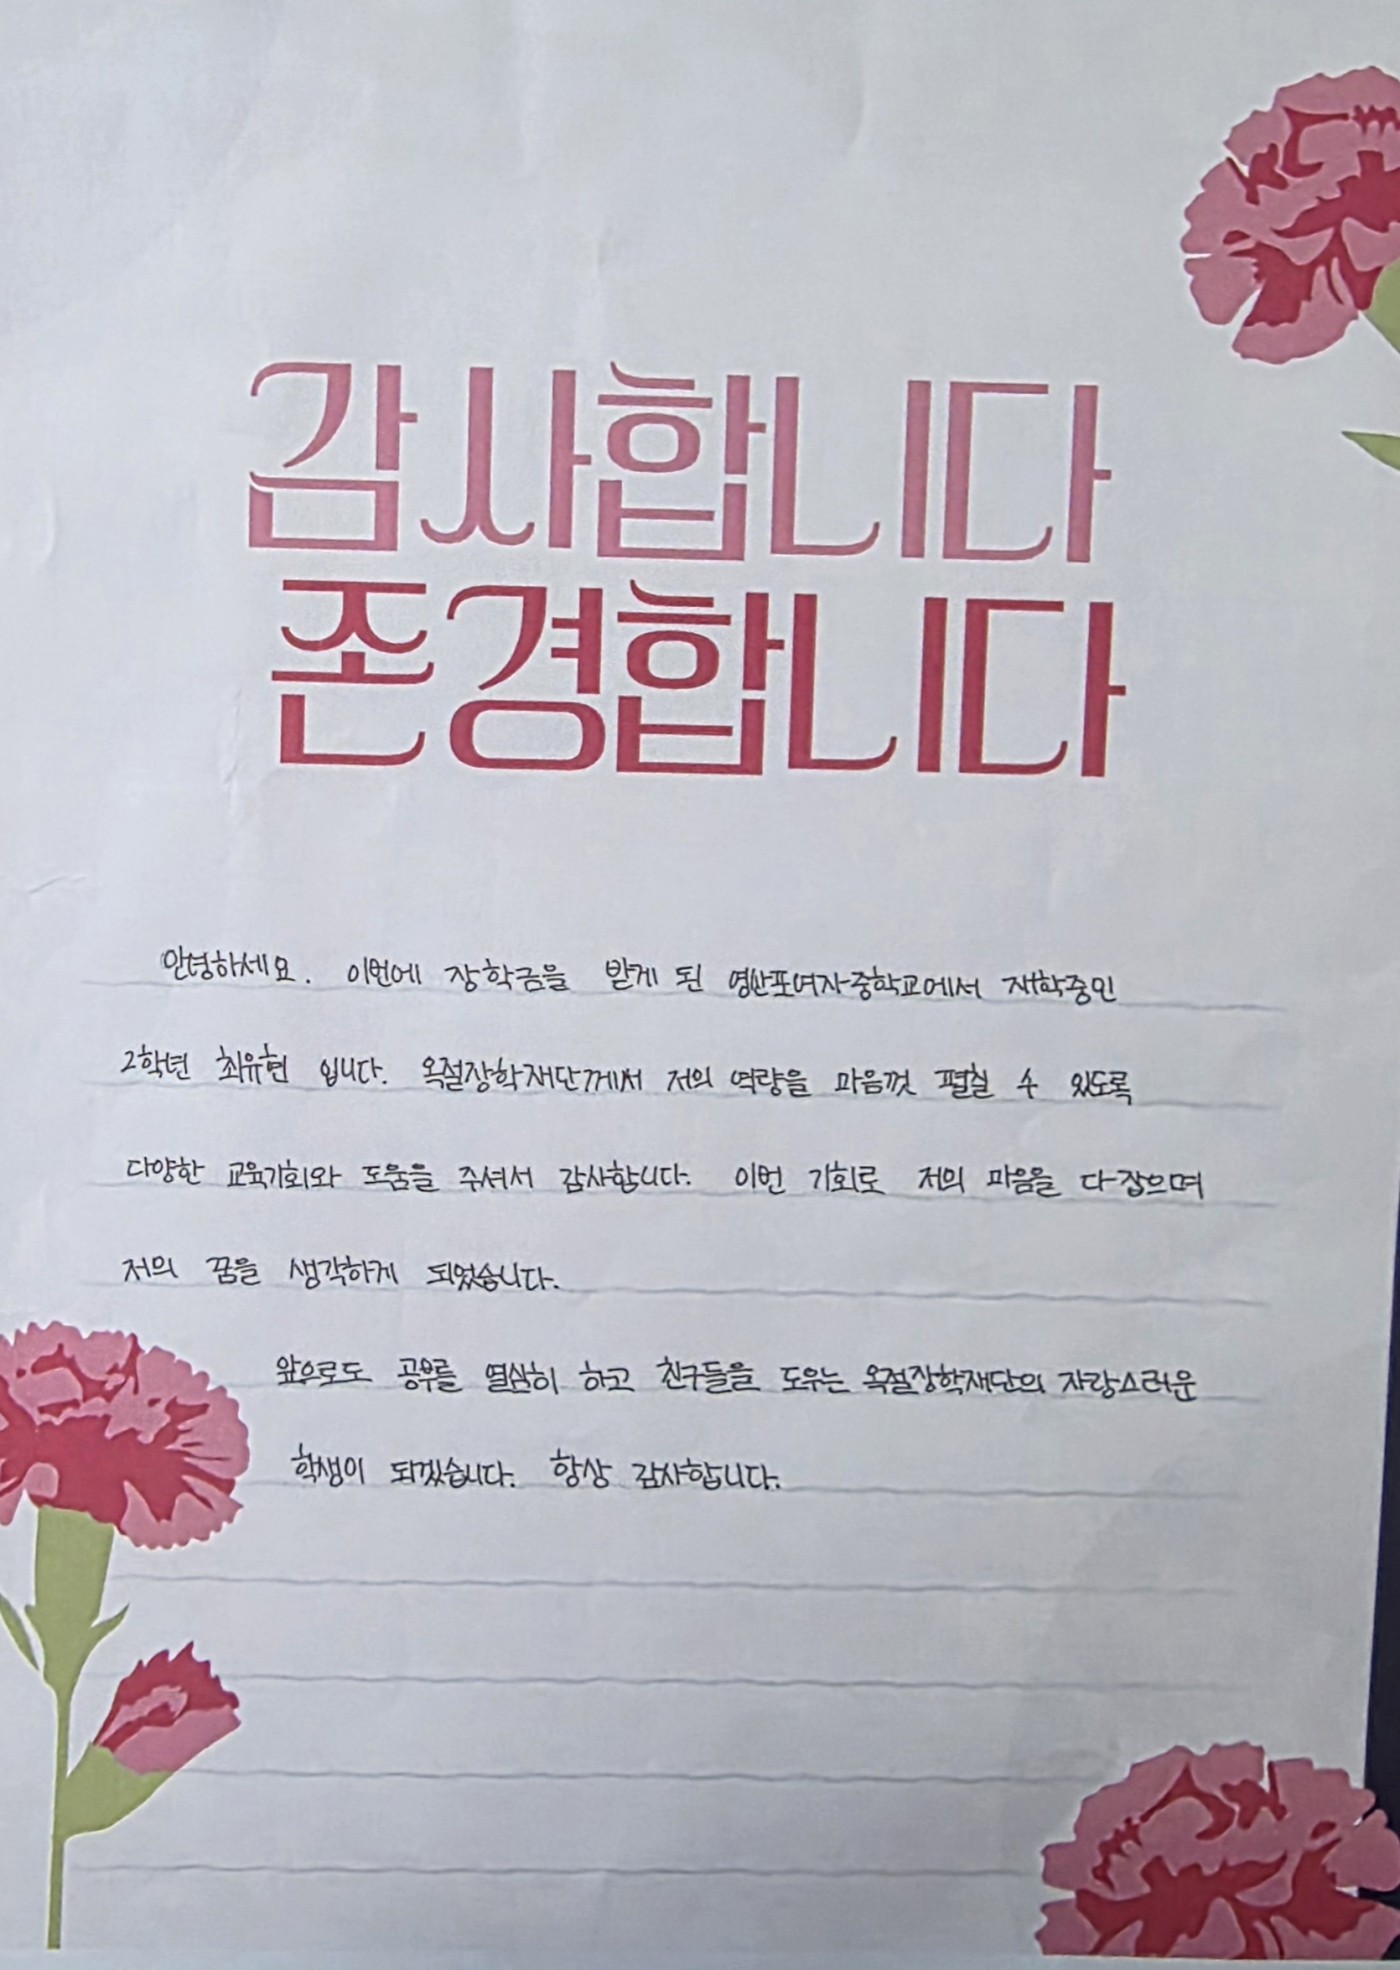 감사합니다
존경합니다
안녕하세요. 이번에 장학금을 받게 된 영산포여자중학교에서 재학중인
2학년 최유현 입니다. 옥절장학재단께서 저의 역량을 마음껏 펼칠 수 있도록
다양한 교육기회와 도움을 주셔서 감사합니다. 이번 기회로 저의 마음을 다잡으며
저의 꿈을 생각하게 되었습니다.
앞으로도 공부를 열심히 하고 친구들을 도우는 옥절장학재단의 자랑스러운
학생이 되겠습니다. 항상 감사합니다.